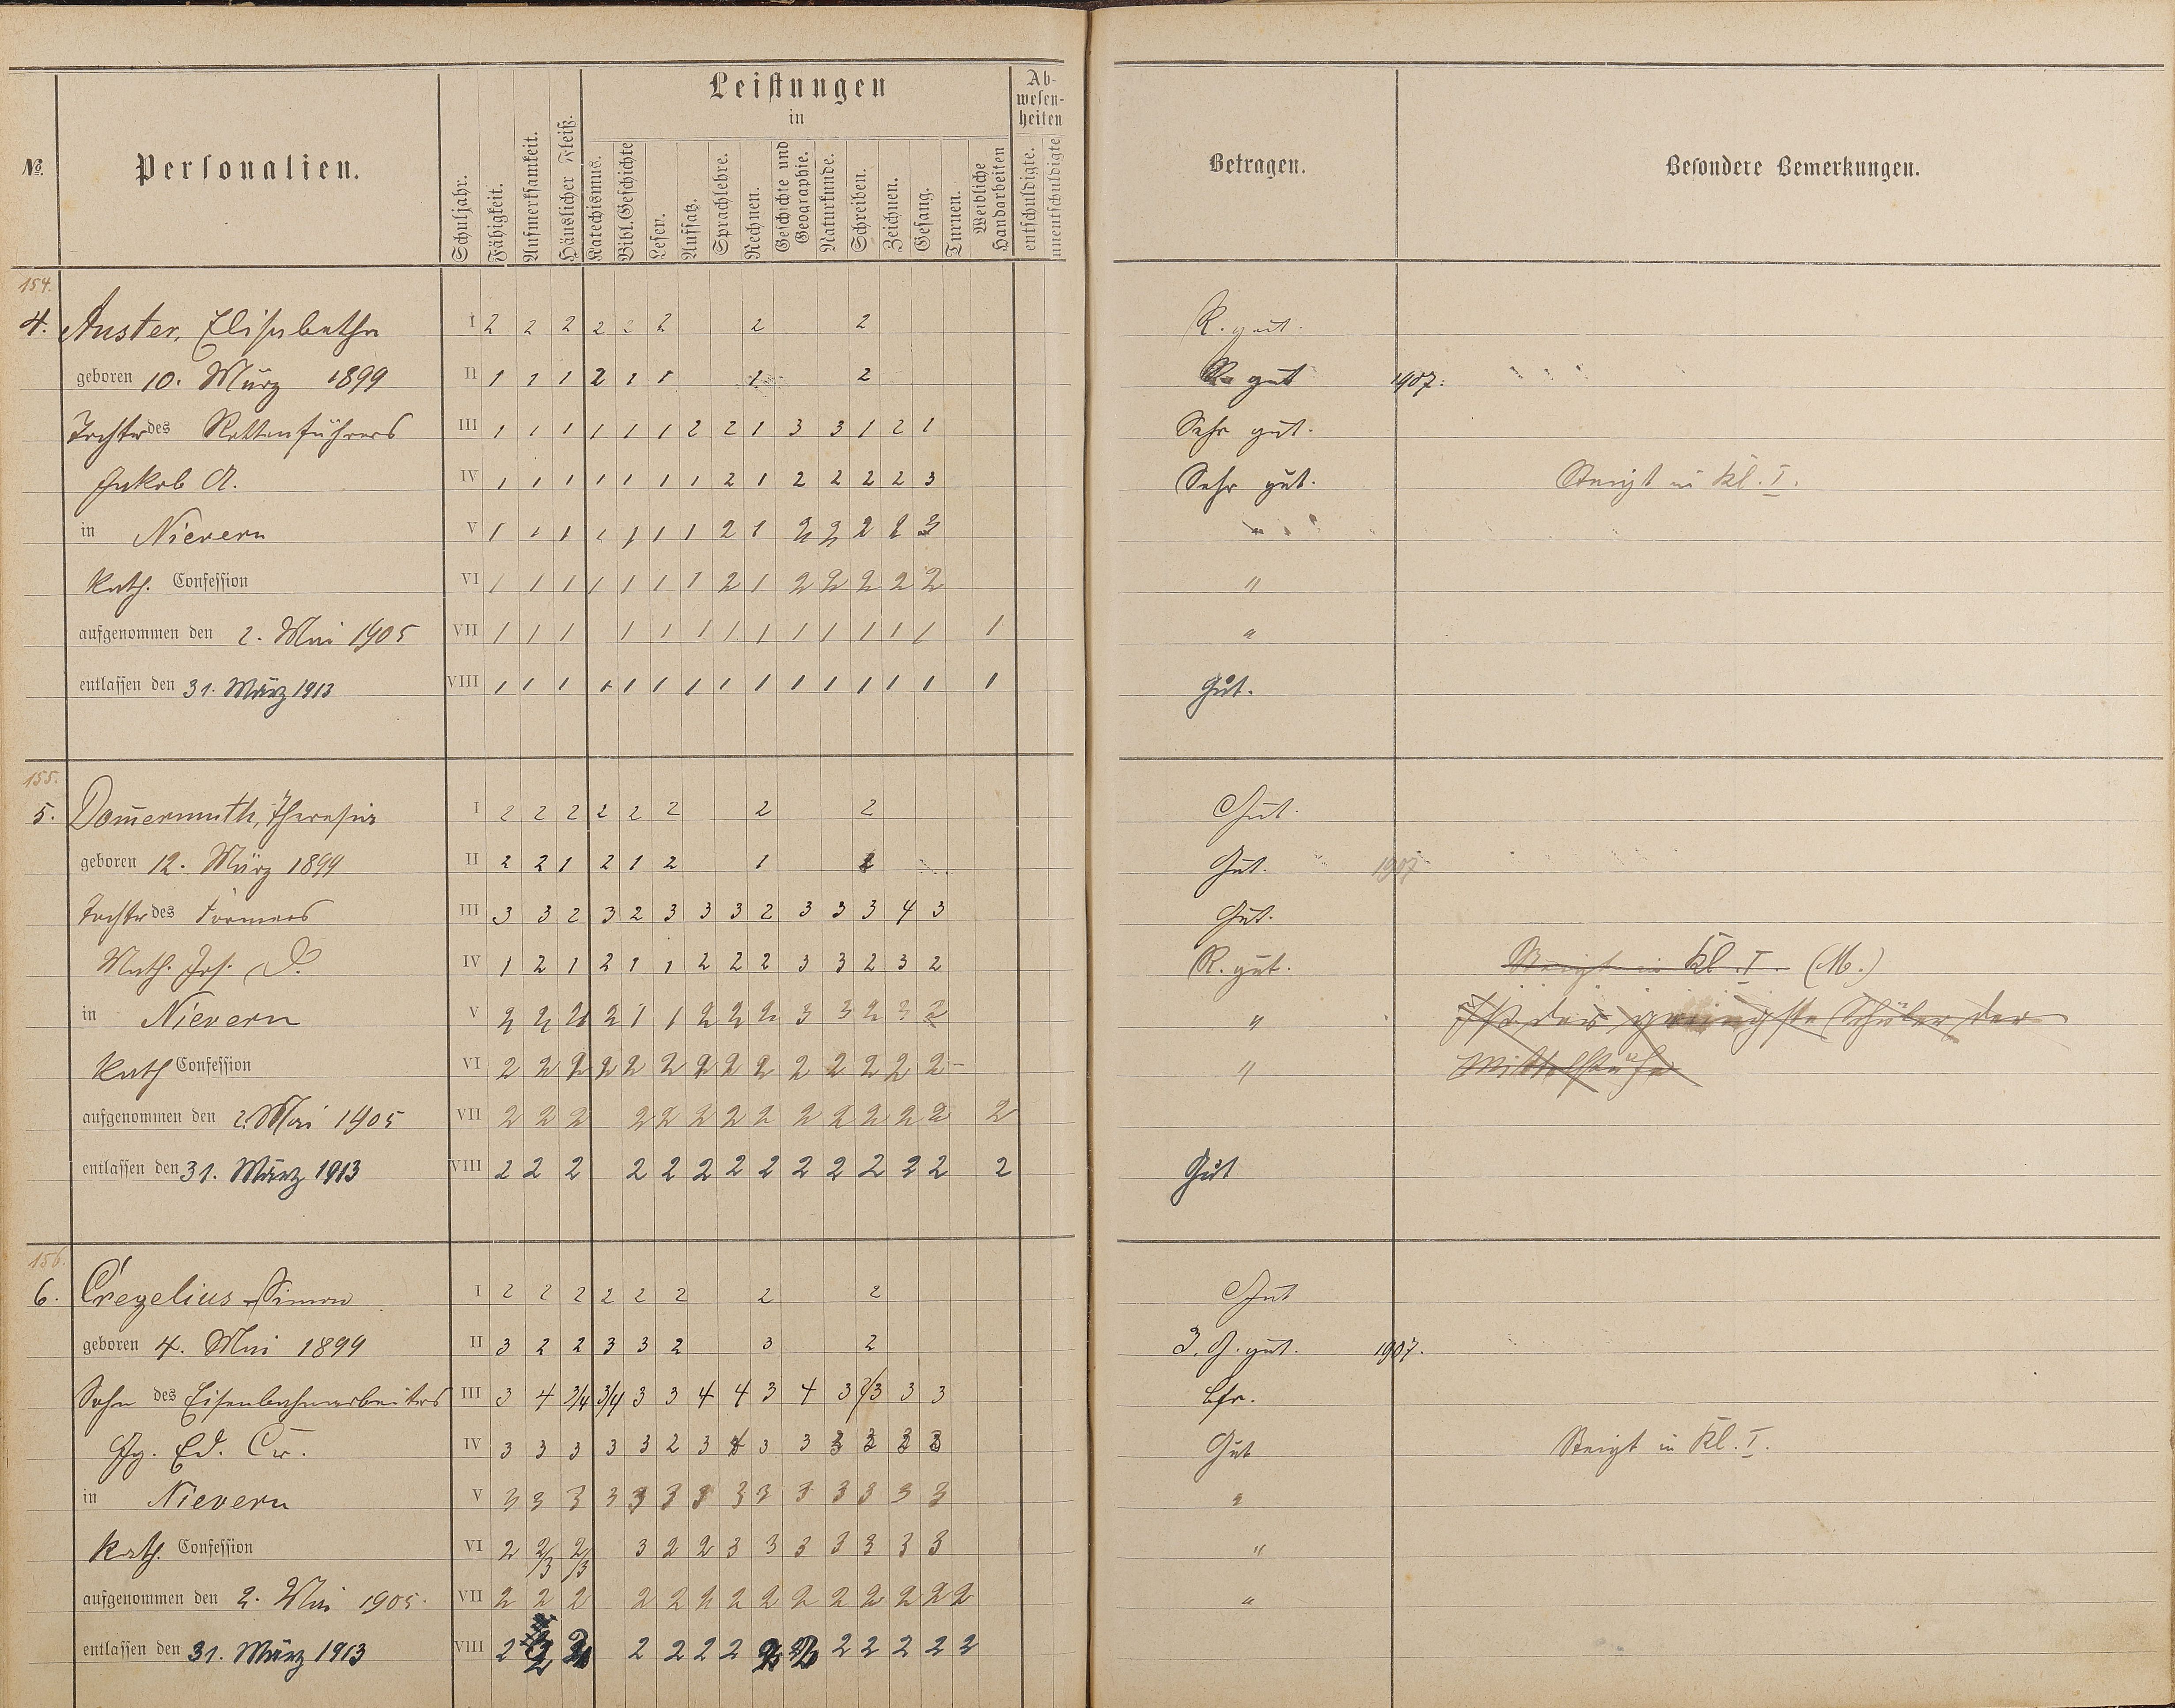 Leistungen
in
Ab-
wesen-
heiten
No.
Personalien.
Schuljahr.
Fähigkeit.
Aufmerksamkeit.
Häuslicher Fleiß.
Katechismus.
Bibl. Geschichte
Lesen.
Aufsatz.
Sprachlehre.
Rechnen.
Geschichte und
Geographie.
Naturkunde.
Schreiben.
Zeichnen.
Gesang.
Turnen.
Weibliche
Handarbeiten
entschuldigte.
unentschuldigte
Betragen.
Besondere Bemerkungen.
154.
4. Auster, Elisabetha I 2 2 2 2 2 2 2 2 R. gut.
geboren 10. März 1899 II 1 1 1 2 1 1 1 2 R. gut 1907.
Tochter des Rottenführers III 1 1 1 1 1 1 2 2 1 3 3 1 2 1 Sehr gut.
Jakob A. IV 1 1 1 1 1 1 1 2 1 2 2 2 2 3 Sehr gut. Steigt in Kl. I.
in Nievern V 1 1 1 1 1 1 1 2 1 2 2 2 2 3 "
Kath. Confession VI 1 1 1 1 1 1 1 2 1 2 2 2 2 2 "
aufgenommen den 2. Mai 1905 VII 1 1 1 1 1 1 1 1 1 1 1 1 1 1 "
entlassen den 31. März 1913 VIII 1 1 1 1 1 1 1 1 1 1 1 1 1 1 1 Gut.
155.
5. Dom̄ermuth, Theresia I 2 2 2 2 2 2 2 2 Gut.
geboren 12. März 1899 II 2 2 1 2 1 2 1 2 Gut. 1907
Tochter des Formers III 3 3 2 3 2 3 3 3 2 3 3 3 4 3 Gut.
Math. Jos. D. IV 1 2 1 2 1 1 2 2 2 3 3 2 3 2 R. gut. Steigt in Kl. I. (M.)
in Nievern V 2 2 2 2 1 1 2 2 2 3 3 2 3 2 "
Kath Confession VI 2 2 2 2 2 2 2 2 2 2 2 2 2 2 " Mittelstufe
aufgenommen den 2. Mai 1905 VII 2 2 2 2 2 2 2 2 2 2 2 2 2 2
entlassen den 31. März 1913 VIII 2 2 2 2 2 2 2 2 2 2 2 2 2 2 Gut
156.
6. Cregelius Simon I 2 2 2 2 2 2 2 2 Gut
geboren 4. Mai 1899 II 3 2 2 3 3 2 3 2 Z. G. gut. 1907.
Sohn des Eisenbahnarbeiters III 3 4 3/4 3/4 3 3 4 4 3 4 3 2/3 3 3
Jg. Ed. Cr. IV 3 3 3 3 3 2 3 3 3 Gut Steigt in Kl. I.
in Nievern V 3 3 3 3 3 3 3 3 3 3 3 3 3 3 "
Kath. Confession VI 2 2/3 2/3 3 2 2 3 3 3 3 3 3 3 "
aufgenommen den 2. Mai 1905. VII 2 2 2 2 2 2 2 2 2 2 2 2 2 2 "
entlassen den 31. März 1913 VIII 2 2 2 2 2 2 2 2 2 2 2